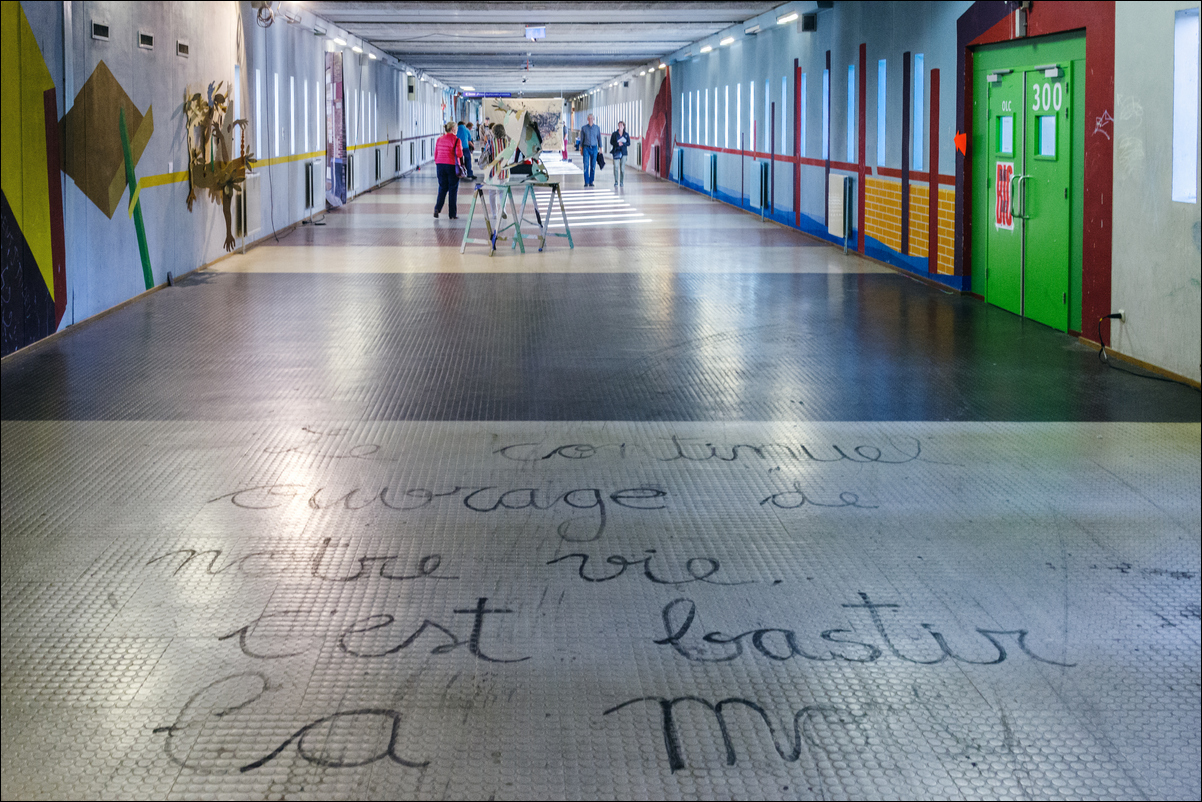 DLC 300
DIC
Le continuel
ouvrage de
notre vie..
c'est bastir
La mo